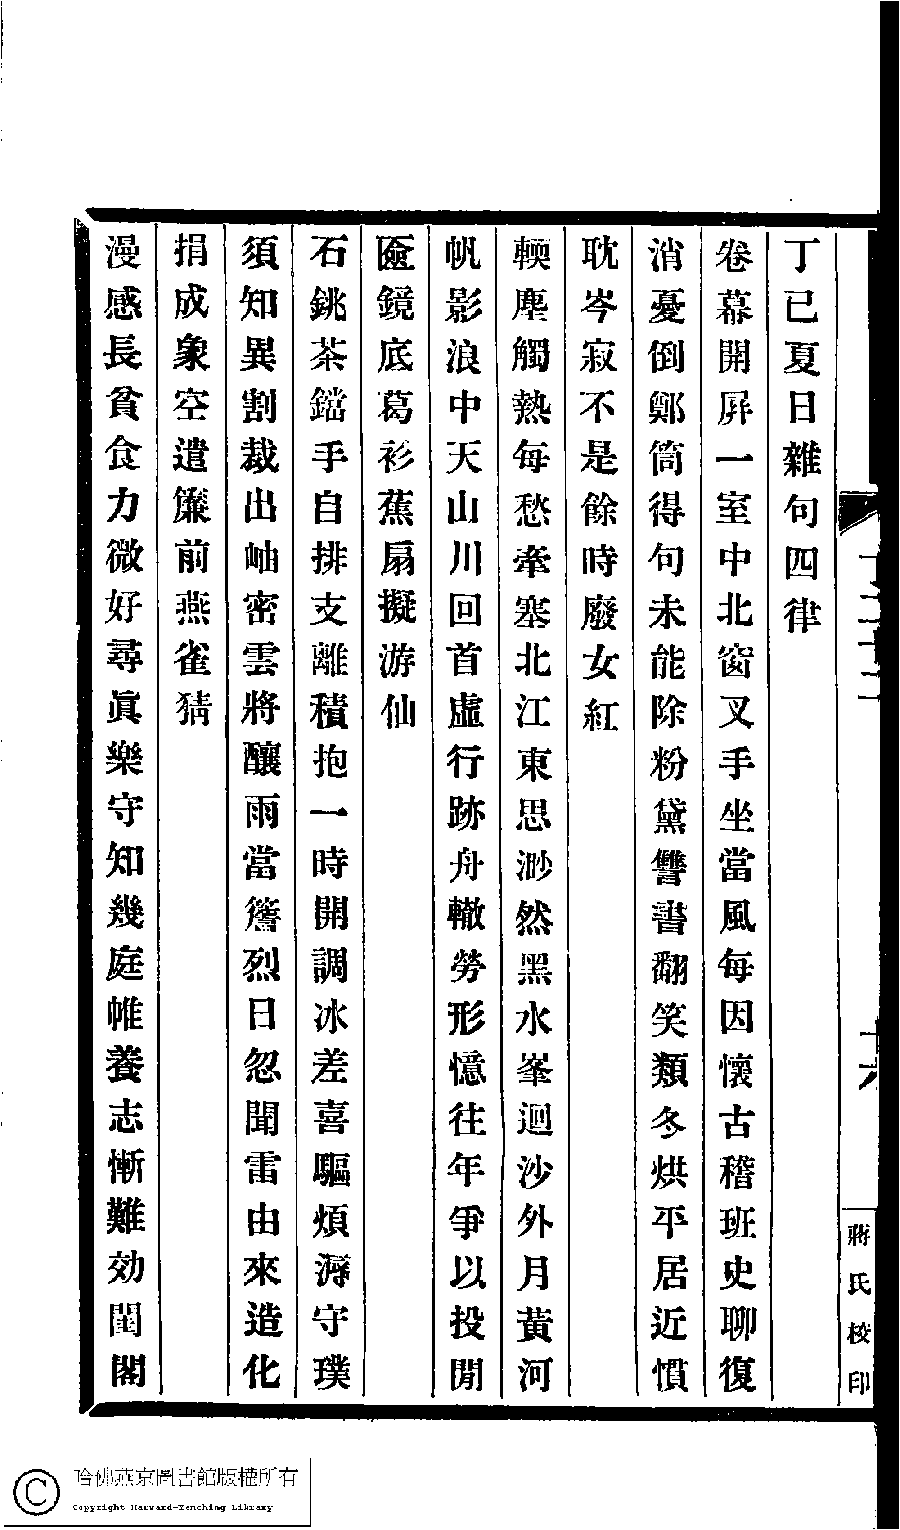 丁巳夏日雜句四律
卷幕開屏一室中北窗叉手坐當風每因懷古稽班史聊復
消憂倒鄭筒得句未能除粉黛讐書翻笑類冬烘平居近慣
耽岑寂不是餘時廢女紅
輭塵觸熱每愁牽塞北江東思渺然黑水峯迴沙外月黃河
帆影浪中天山川回首虛行跡舟轍勞形憶往年爭以投閒
匳鏡底葛衫蕉扇擬游仙
石銚茶鐺手自排支離積抱一時開調冰差喜驅煩溽守璞
須知異割裁出岫密雲將釀雨當簷烈日忽聞雷由來造化
捐成象空遣簾前燕雀猜
漫感長貧食力微好尋眞樂守知幾庭帷養志慚難効閨閣
十六
蔣氏校印
哈佛燕京圖書館版權所有
Copyright Harvard-Yenching Library